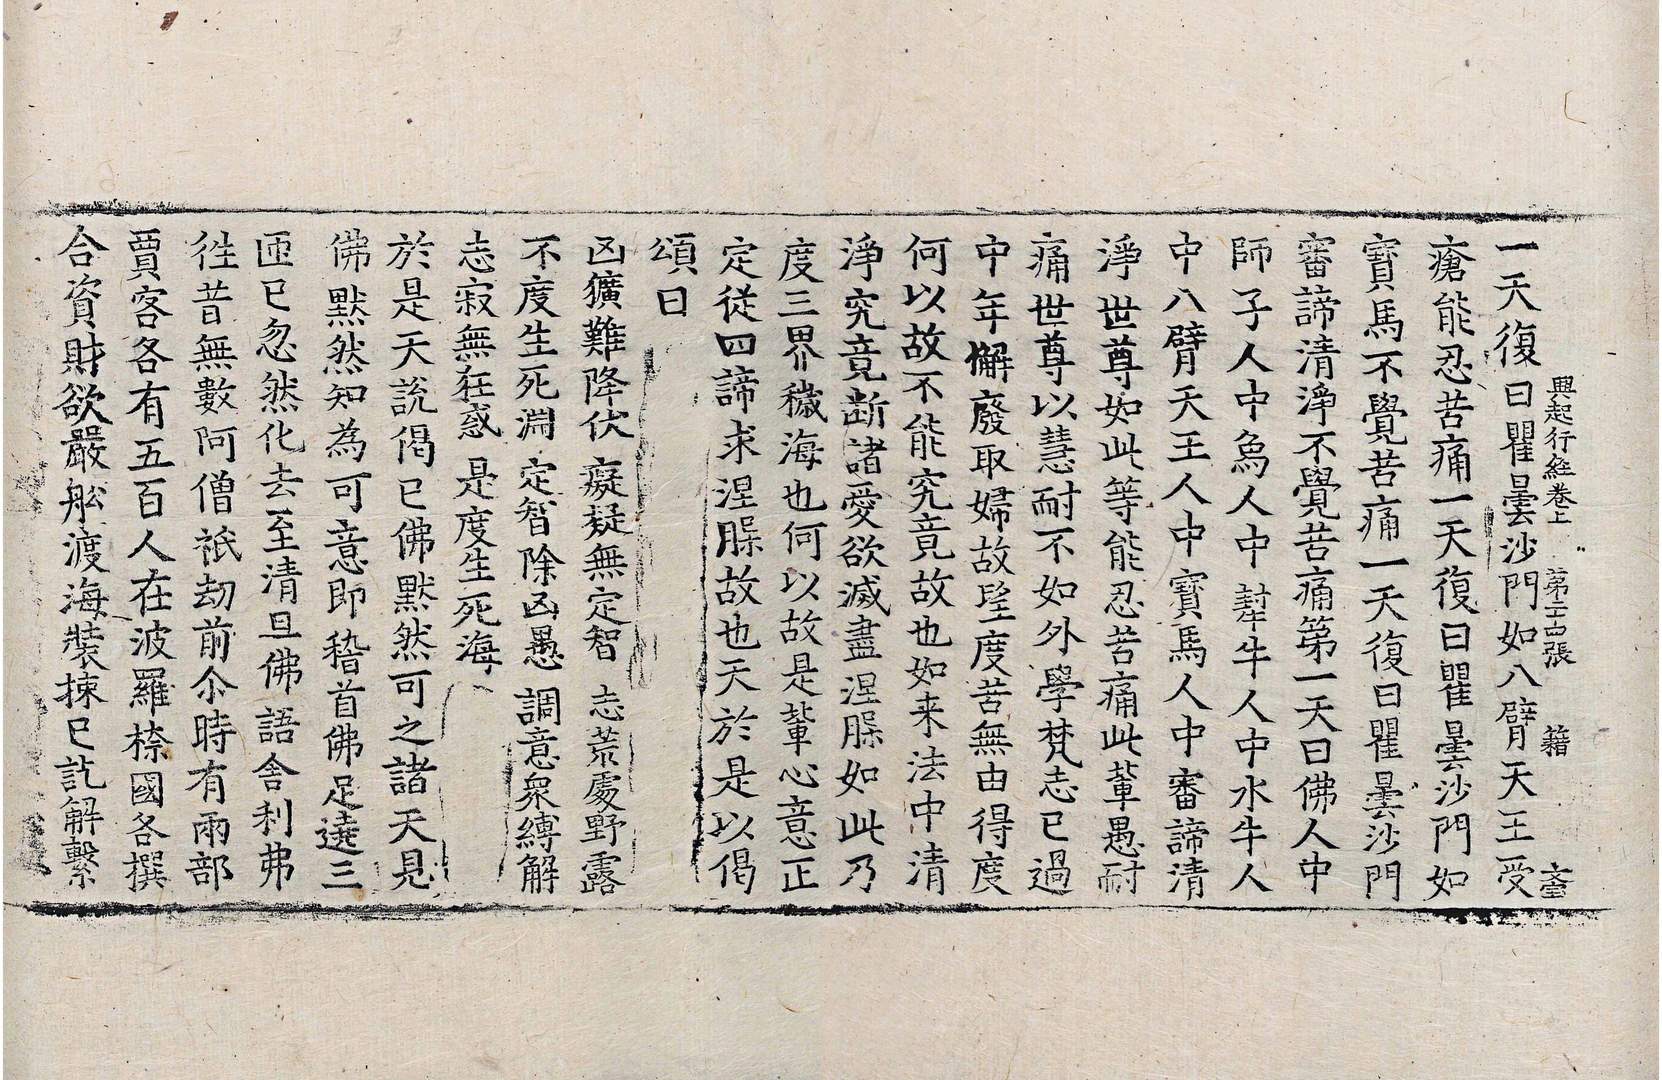 一天復曰瞿曇沙門如八臂天王受
興起行經卷上 第十四張 籍
瘡能忍苦痛一天復曰瞿曇沙門如
寶馬不覺苦痛一天復曰瞿曇沙門
審諦清淨不覺苦痛第一天曰佛人中
師子人中鳥人中犎牛人中水牛人
中八臂天王人中寶馬人中審諦清
淨世尊如此等能忍苦痛此輩愚耐
痛世尊以慧耐不如外學梵志已過
中年懈廢取婦故望度苦無由得度
何以故不能究竟故也如来法中清
淨究竟断諸愛欲滅盡涅槃如此乃
度三界穢海也何以故是輩心意正
定従四諦求涅槃故也天於是以偈
頌曰
凶獷難降伏 癡疑無定智 志荒處野露
不度生死淵 定智除凶愚 調意衆縛解
志寂無狂惑 是度生死海
於是天說偈已佛默然可之諸天見
佛默然知為可意即稽首佛足遶三
匝已忽然化去至清旦佛語舎利弗
徃昔無數阿僧祇劫前尒時有兩部
賈客各有五百人在波羅㮈國各撰
合資財欲嚴舩渡海裝揀已訖解繫